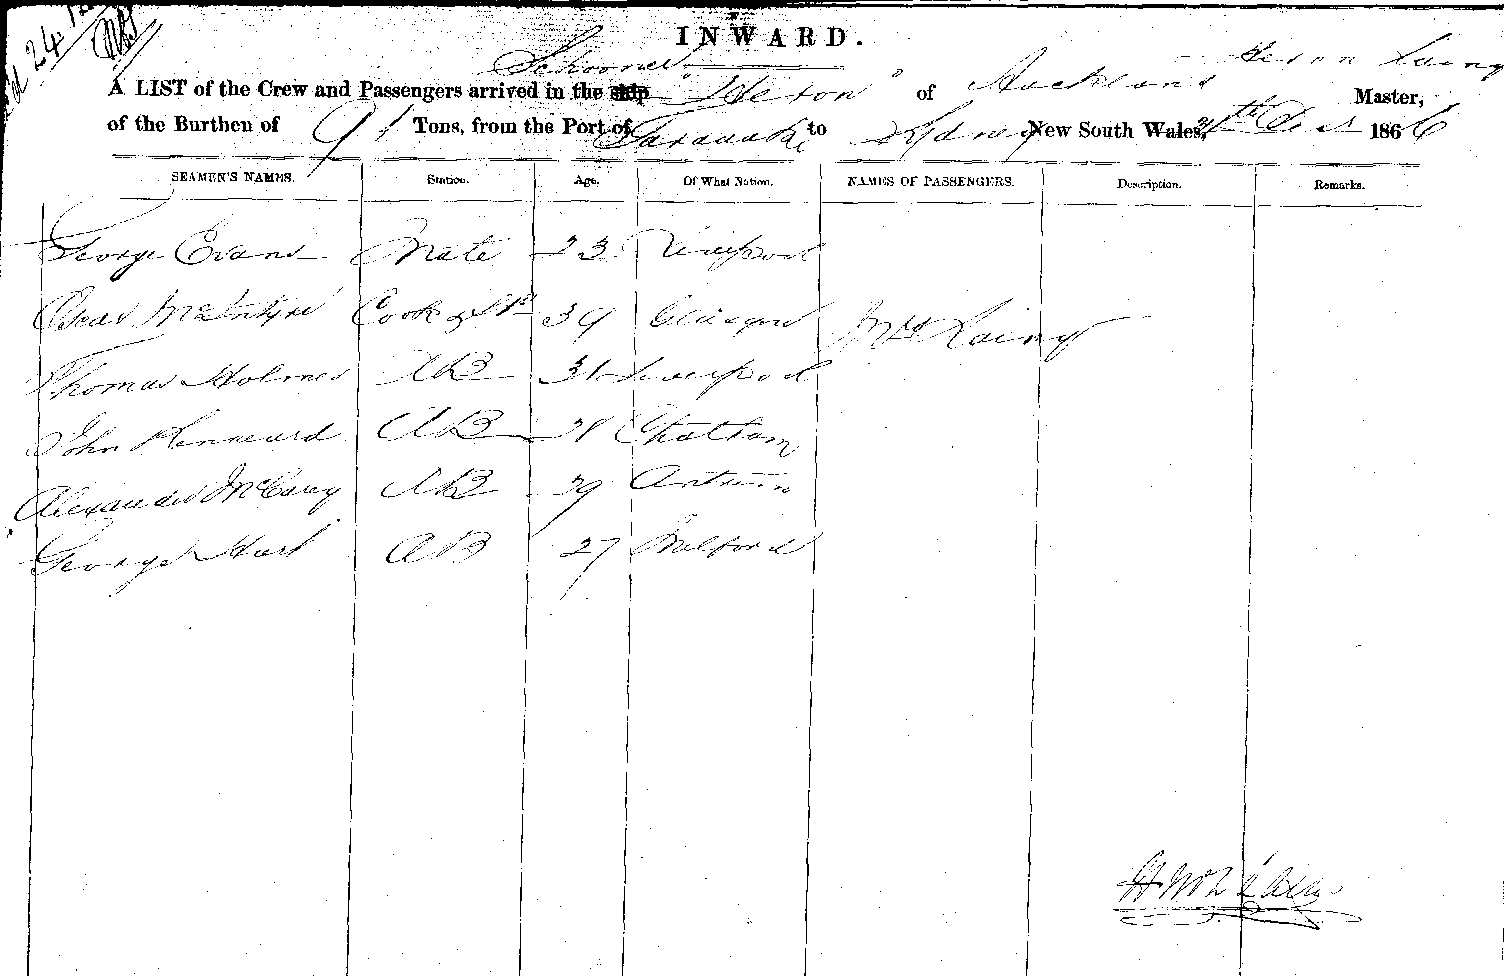 24
INWARD.
Schooner
A LIST of the Crew and Passengers arrived in the ship "Heron" of Auckland Laing Master,
of the Burthen of 91 Tons, from the Port of Taranaki to Sydney New South Wales, th Decr 1866
SEAMEN'S NAMES. Station. Age. Of What Nation. NAMES OF PASSENGERS. Description. Remarks.
George Evans Mate 23 Liverpool
Oscar McIntyre Cook & Std 39 Glasgow Mrs Laing
Thomas Holmes AB Liverpool
John Kenneard AB Chatham
Alexander McCarey AB Antrim
George Hart AB 27 Milford